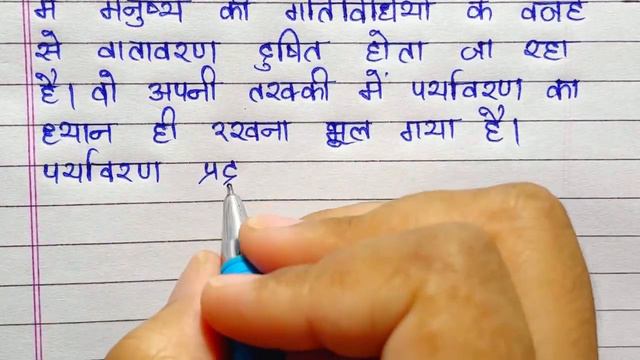 में मनुष्य की गतिविधियों के वजह
से वातावरण दुषित होता जा रहा
है। वो अपनी तरक्की में पर्यावरण का
ध्यान ही रखना भूल गया है।
पर्यावरण प्रद